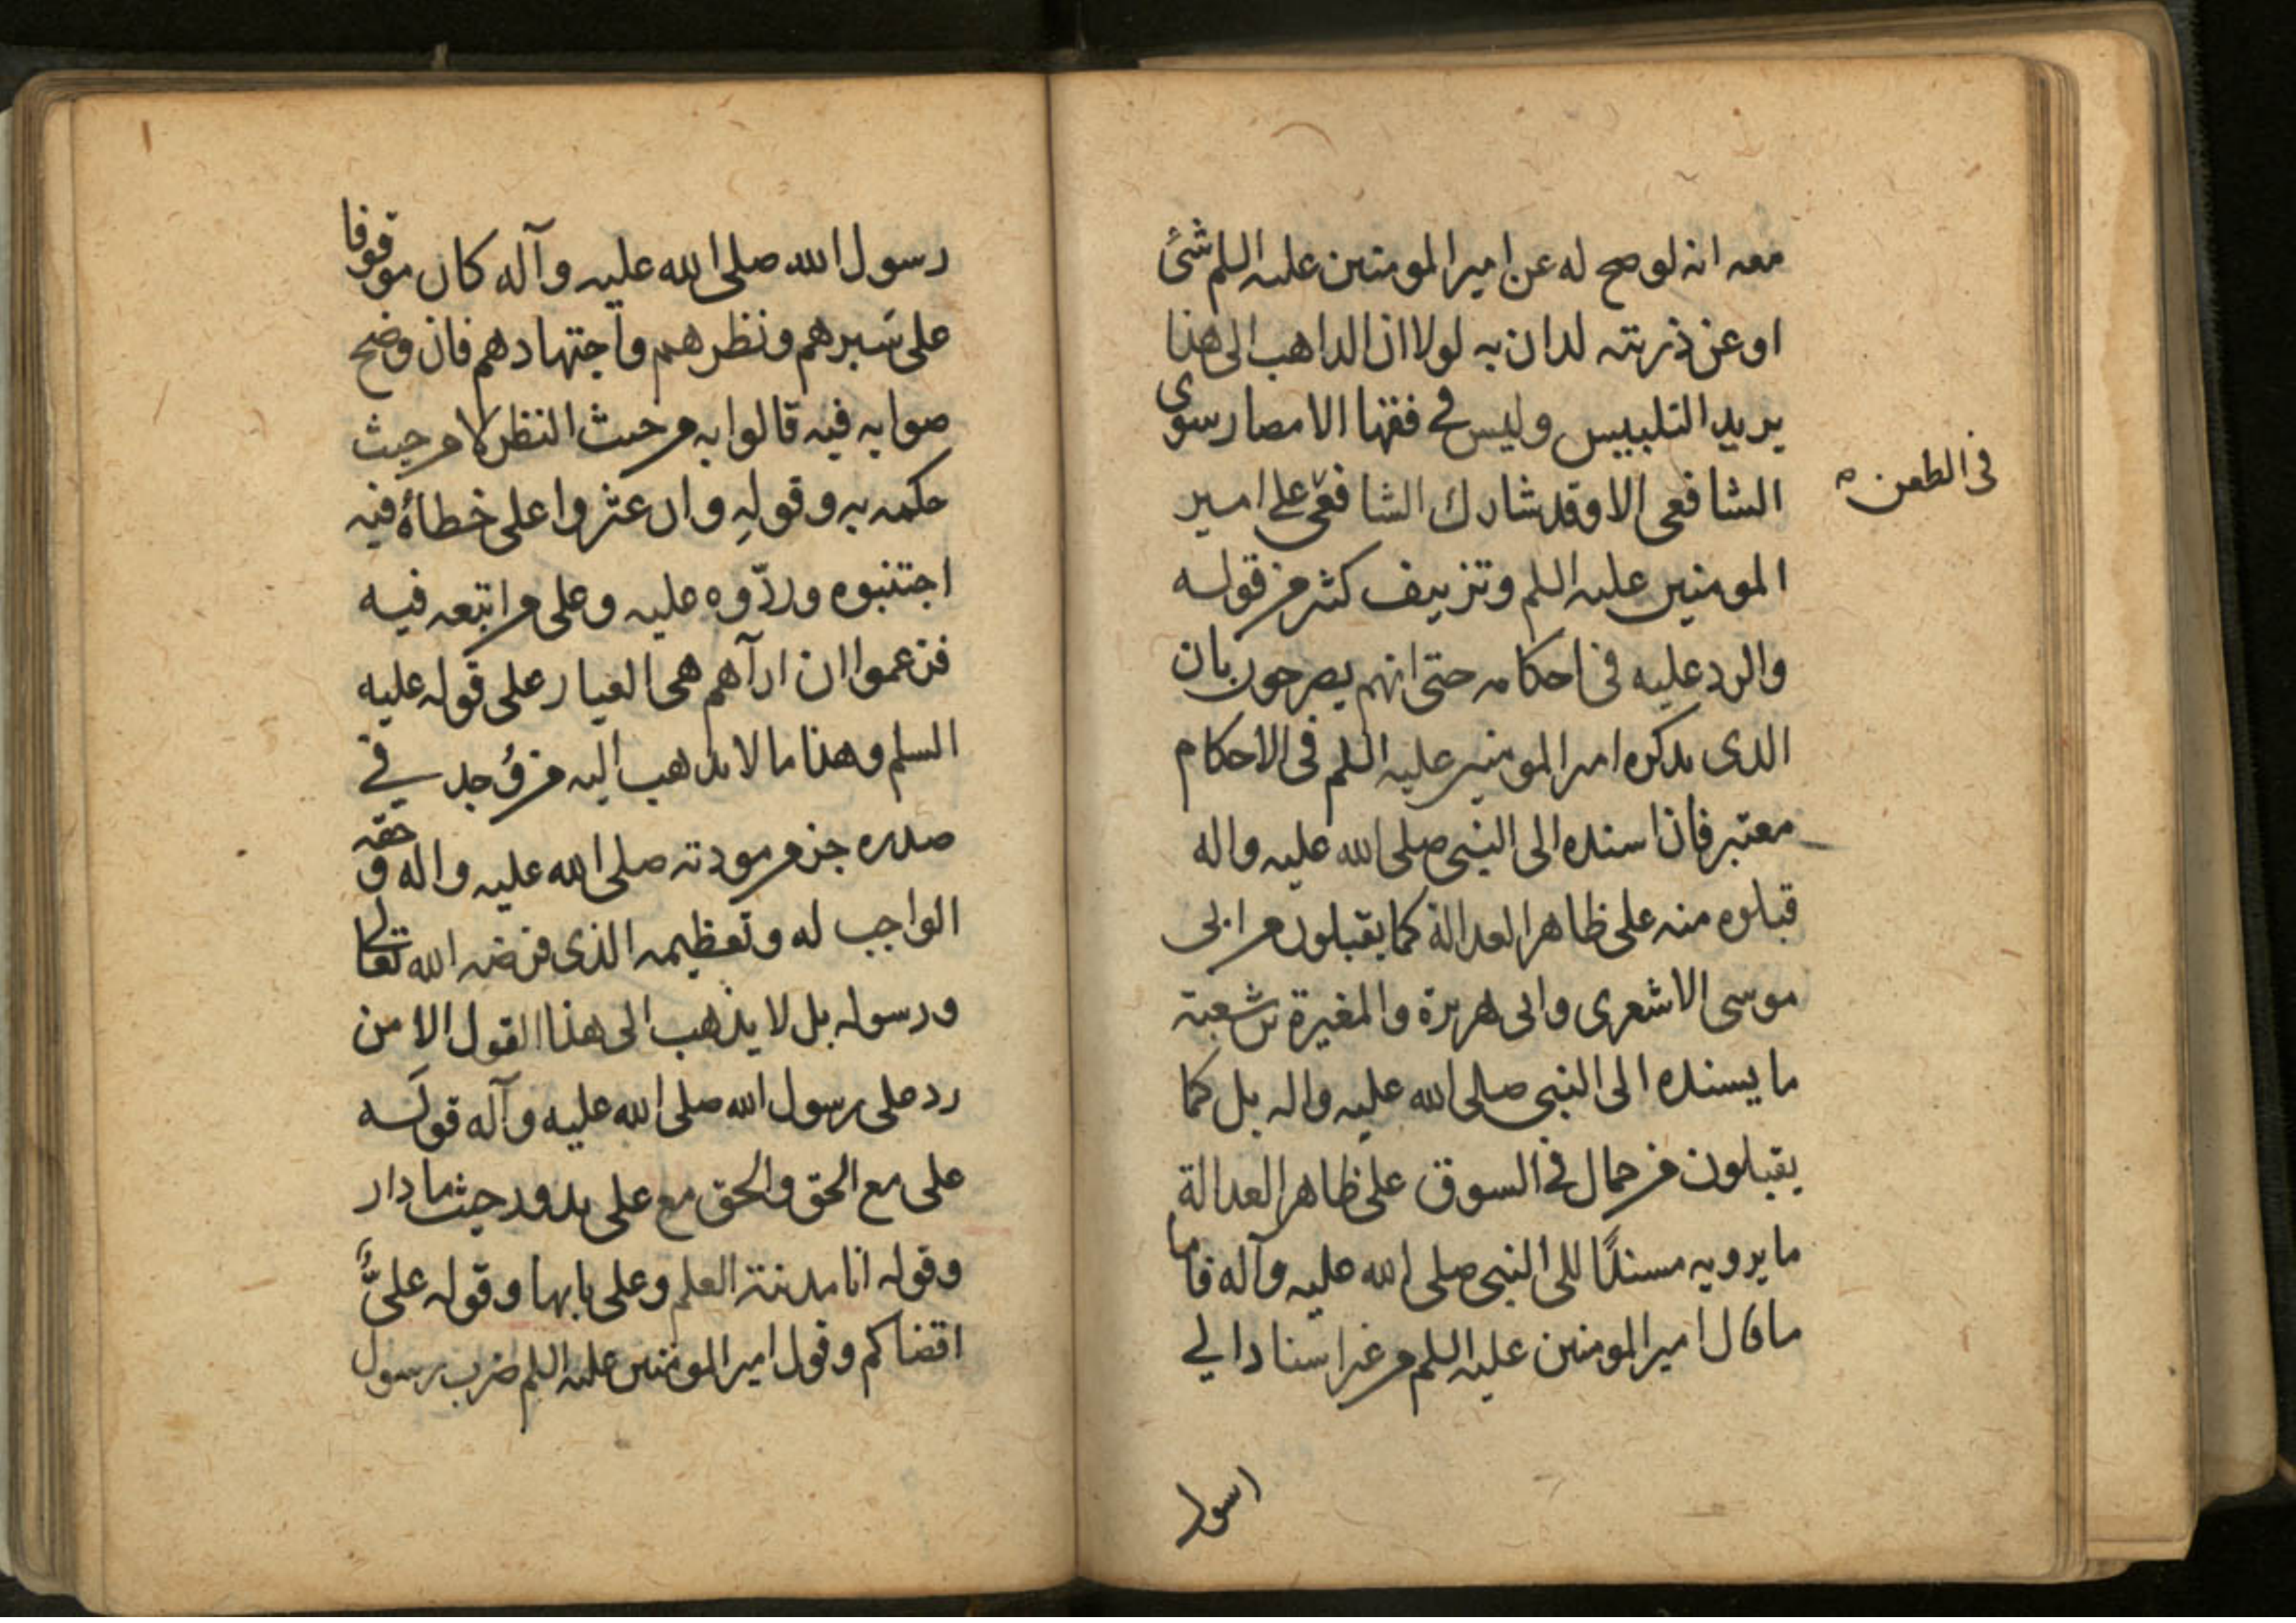 معه انه لو صح له عن امير المومنين عليه السلم شئ
او عن ذريته لدان به لولا ان الذاهب الى هذا
يريد التلبيس وليس في فقها الامصار سوى
الشافعى الا وقد شارك الشافعى على امير
فى الطعن
المومنين عليه السلم وتزييف كثير من قوله
والرد عليه فى احكامه حتى انهم يصرحون بان
الذى يذكره امير المومنين عليه السلم فى الاحكام
معتبر فان اسنده الى النبى صلى الله عليه واله
قبلوه منه على ظاهر العدالة كما يقبلون من ابى
موسى الاشعرى وابى هريرة والمغيرة بن شعبة
ما يسنده الى النبى صلى الله عليه واله بل كما
يقبلون من حمال في السوق على ظاهر العدالة
ما يرويه مسندًا الى النبى صلى الله عليه وآله فاما
ما قال امير المومنين عليه السلم من غير اسناد الي
رسول
رسول الله صلى الله عليه وآله كان موقوفا
على سَبرهم ونظرهم واجتهادهم فان وضح
صوابه فيه قالوا به من حيث النظر لا من حيث
حكمه به وقولِه وان عثروا على خطأه فيه
اجتنبوه وردّوه عليه وعلى من اتبعه فيه
فزعموا ان ارآهم هى العيار على قوله عليه
السلم وهذا ما لا يذهب اليه من وُجد في
صدره جزء من مودته صلى الله عليه واله وحقه
الواجب له وتعظيمه الذى فرضه الله تعالى
ورسوله بل لا يذهب الى هذا القول الا من
رد على رسول الله صلى الله عليه وآله قولَه
على مع الحق والحق مع على يدور حيث ما دار
وقوله انا مدينة العلم وعلى بابها وقوله علىٌّ
اقضاكم وقول امير المومنين عليه السلم ضرب رسول